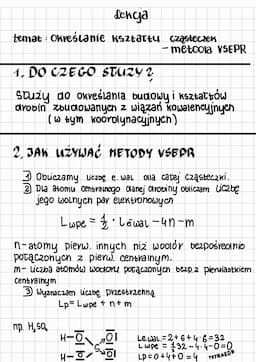 lekcja
temat: Określanie kształtu cząsteczek
- metoda VSEPR
1. DO CZEGO SŁUŻY?
Służy do określania budowy i kształtów
drobin zbudowanych z wiązań kowalencyjnych
(w tym koordynacyjnych)
2. JAK UŻYWAĆ METODY VSEPR
1 Obliczamy liczbę e. wal. dla całej cząsteczki.
2 Dla atomu centralnego danej drobiny obliczam liczbę
jego wolnych par elektronowych
Lwpe = 1/2 · Lewal - 4n - m
n - atomy pierw. innych niż wodór bezpośrednio
połączonych z pierw. centralnym.
m - liczba atomów wodoru połączonych bezp. z pierwiastkiem
centralnym
3 Wyznaczam liczbę przestrzenną
Lp = Lwpe + n + m
np. H2SO4
H-O O
S
H-O O
Lewal = 2+6+4·6=32
Lwpe = 1/2 32-4·4-0=0
Lp=0+4+0=4 TETRAEDR